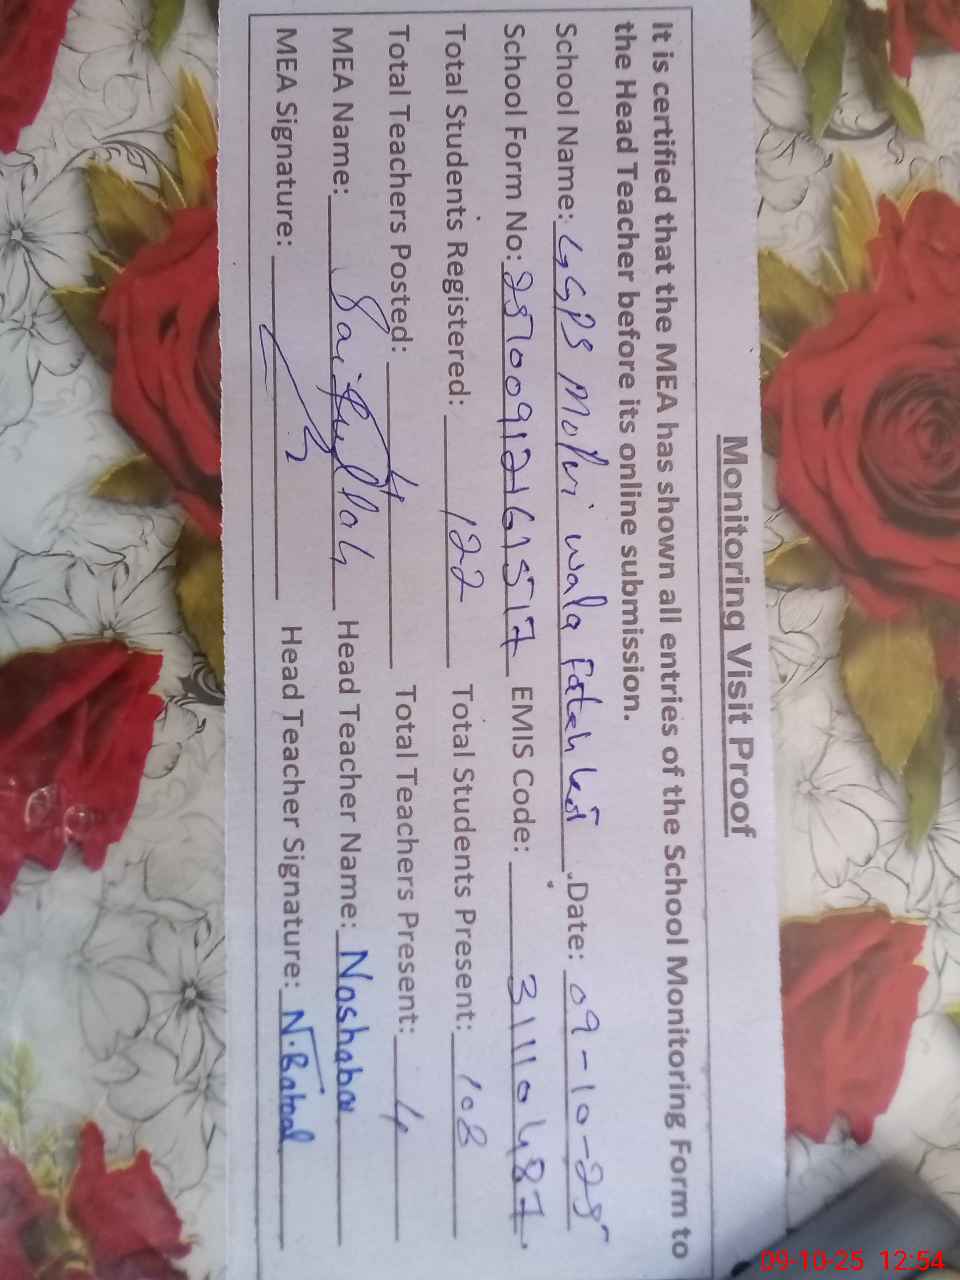 Monitoring Visit Proof
It is certified that the MEA has shown all entries of the School Monitoring Form to
the Head Teacher before its online submission.
School Name: GGPS Molvi wala Fateh . Date: 09-10-25
School Form No: EMIS Code: 31110487
Total Students Registered: 122 Total Students Present: 108
Total Teachers Posted: 4 Total Teachers Present: 4
MEA Name: Saifullah Head Teacher Name: Noshaba
MEA Signature: Head Teacher Signature: N.Batool
09-10-25 12:54